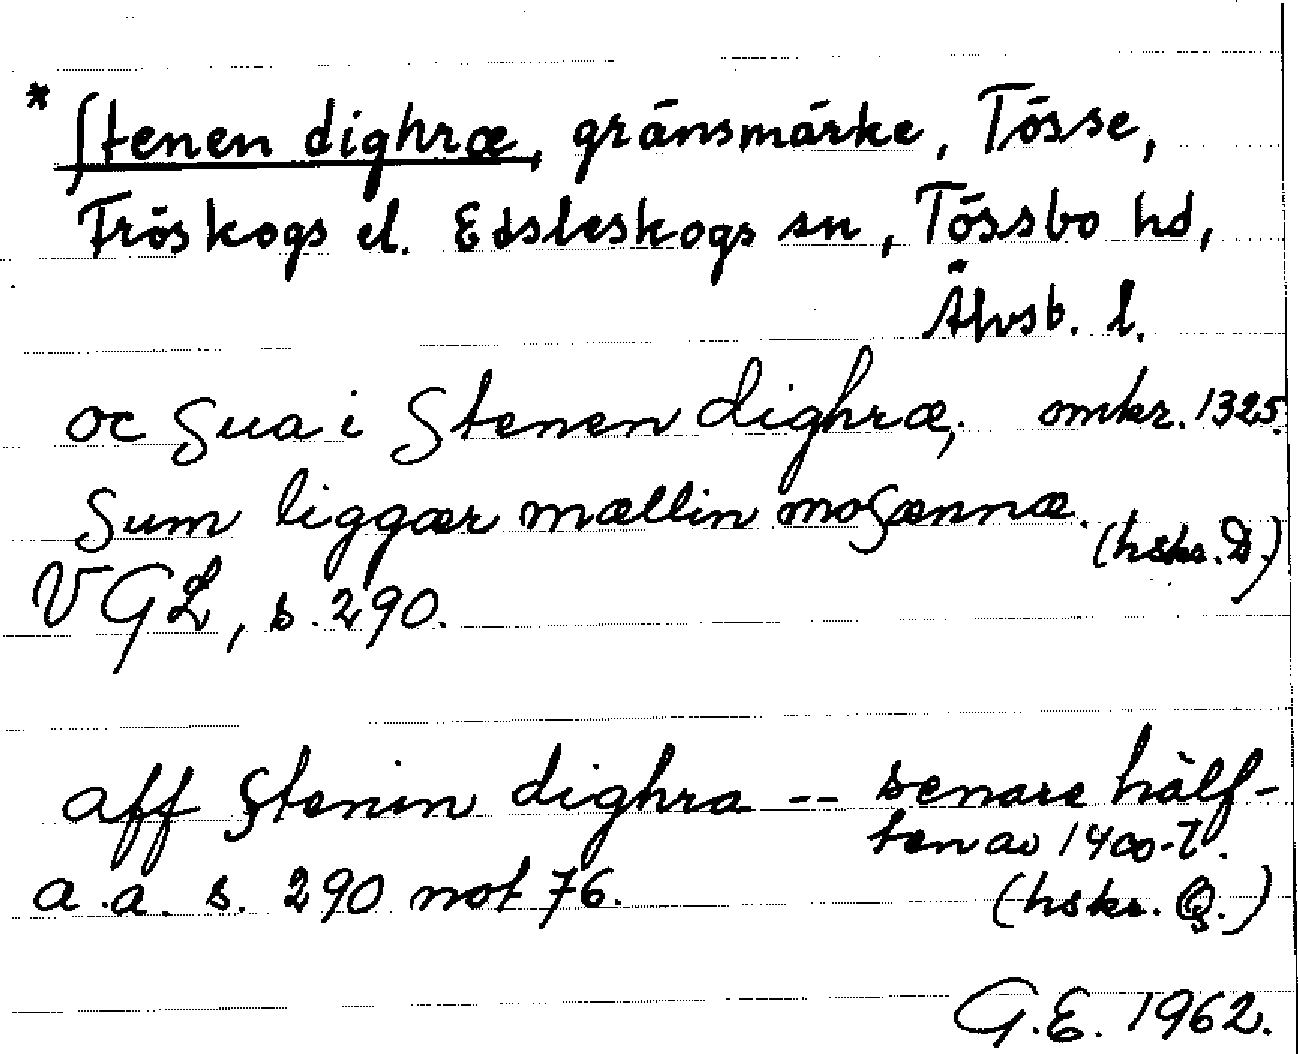 * ſtenen dighræ, gränsmärke, Tösse,
Fröskogs el. Edsleskogs sn, Tössbo hd,
Älvsb. l.
oc sua i stenen dighræ, omkr. 1325.
sum liggær mællin mosænnæ. (hskr. D.)
VGL, s. 290.
aff stenin dighra -- senare hälf-
ten av 1400-t.
a.a. s. 290 not 76. (hskr. Q.)
G.E. 1962.